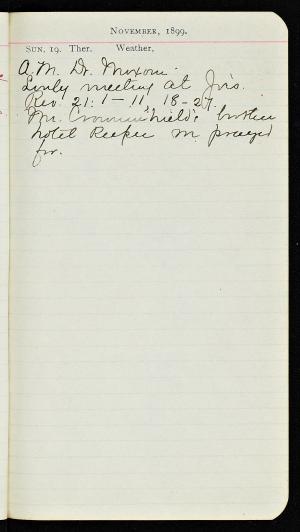 November, 1899.
Sun. 19. Ther. Weather,
A.M. Dr. Moxom
meeting at Jo's.
Rev. 21: 1-11, 18-27.
Mr. Crowninshield's brother
hotel keeper m prayed
for.